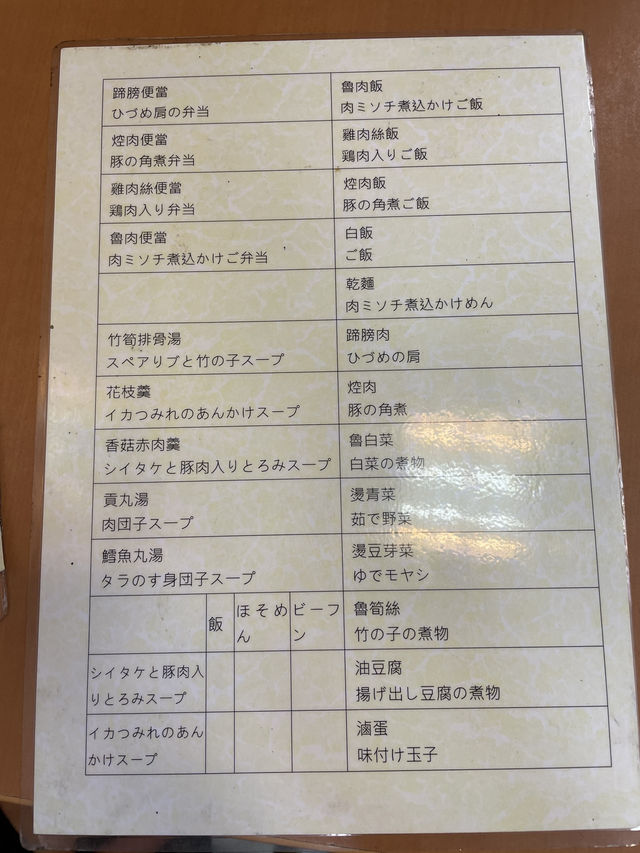 蹄膀便當
ひづめ肩の弁当
焢肉便當
豚の角煮弁当
雞肉絲便當
鶏肉入り弁当
魯肉便當
肉ミソチ煮込かけご弁当
竹筍排骨湯
スペアリブと竹の子スープ
花枝羹
イカつみれのあんかけスープ
香菇赤肉羹
シイタケと豚肉入りとろみスープ
貢丸湯
肉団子スープ
鱈魚丸湯
タラのす身団子スープ
飯
ほそめ
ん
ビーフ
ン
シイタケと豚肉入
りとろみスープ
イカつみれのあん
かけスープ
魯肉飯
肉ミソチ煮込かけご飯
雞肉絲飯
鶏肉入りご飯
焢肉飯
豚の角煮ご飯
白飯
ご飯
乾麵
肉ミソチ煮込かけめん
蹄膀肉
ひづめの肩
焢肉
豚の角煮
魯白菜
白菜の煮物
燙青菜
茹で野菜
燙豆芽菜
ゆでモヤシ
魯筍絲
竹の子の煮物
油豆腐
揚げ出し豆腐の煮物
滷蛋
味付け玉子